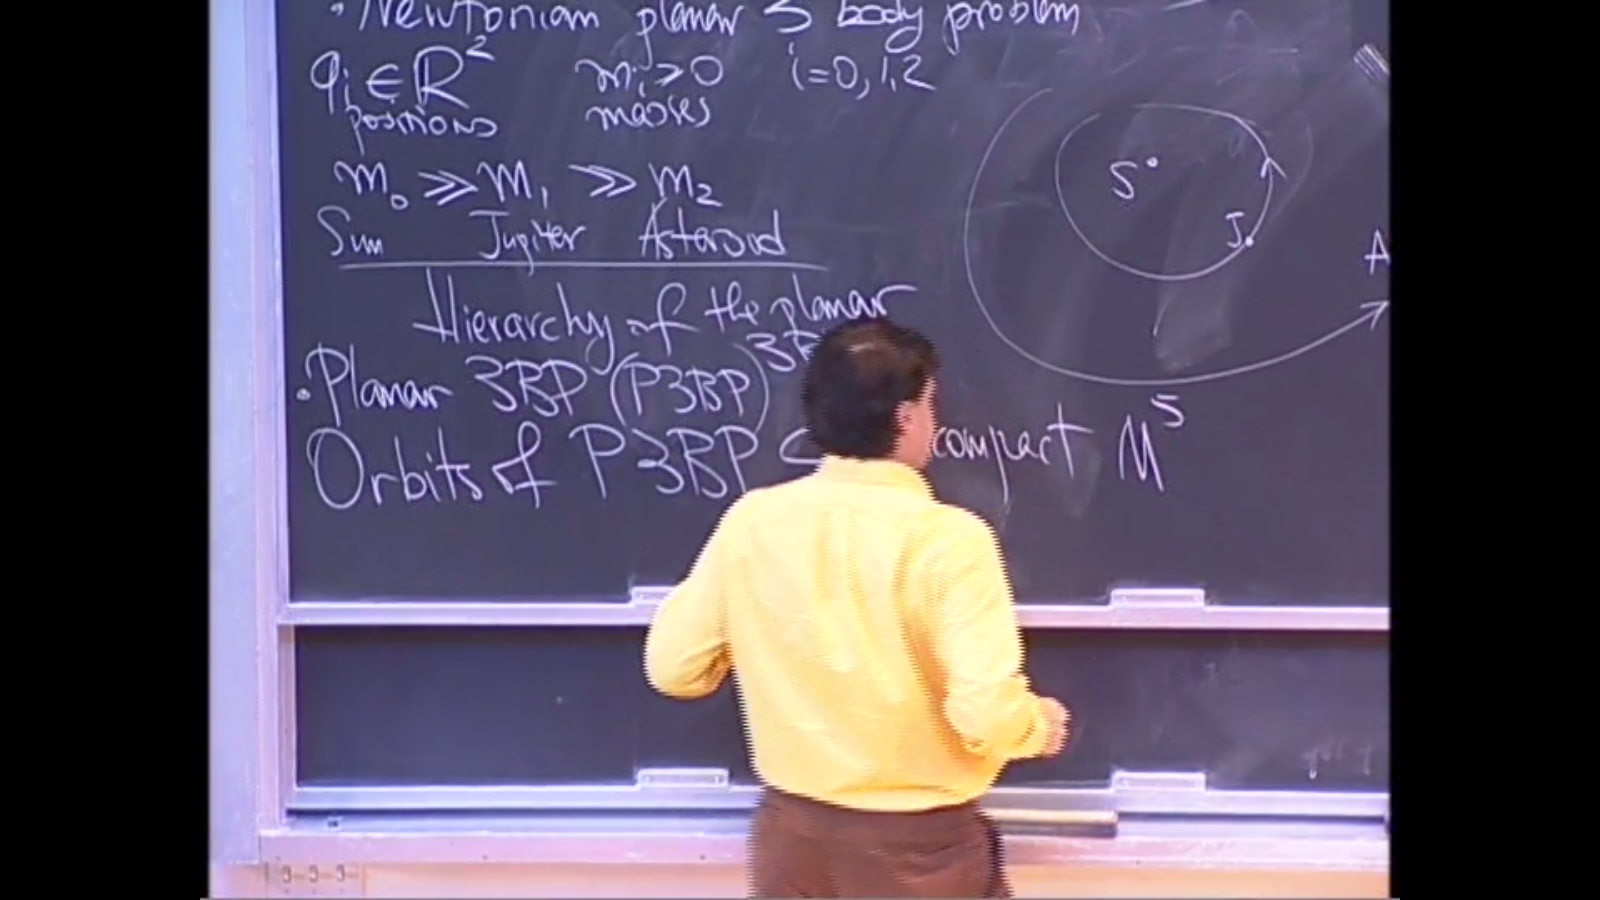 · Newtonian planar 3 body problem
qᵢ ∈ ℝ² mᵢ > 0 i=0,1,2
positions masses
m₀ ≫ m₁ ≫ m₂
Sun Jupiter Asteroid
Hierarchy of the planar
3B
· Planar 3BP (P3BP)
Orbits of P3BP compact M⁵
S
J
A